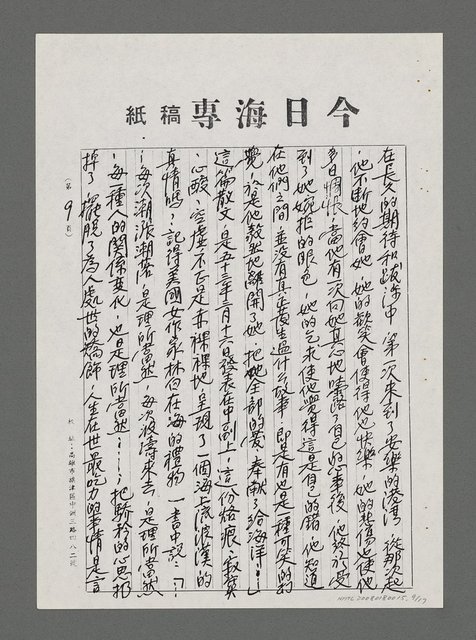 今日海專稿紙
在長久的期待和跋涉中，第一次來到了安樂的港灣，從那次起
，他不斷地約會她，她的歡笑會使得他也快樂，她的悲傷也使他
多日惆悵，當他有一次向她真心地嘯露了自己的心事後，他終於受
到了她婉拒的眼色，她的乞求使他覺得這是自己的錯，他知道
在他們之間，並沒有真正發生過什么故事，即是有也是種可笑的
覺，於是他毅然地離開了她，把她全部的愛，奉獻了給海洋！」
這篇散文，是五十三年三月十六日發表在中副上，這份烙痕、寂寞
、心酸、空虛，不正是赤裸裸地呈現了一個海上流浪漢的
真情嗎？記得美國女作家林白在海的禮物一書中說：「…
…每次潮漲潮落，是理所當然，每次波濤來去，是理所當然
，每一種人的關係變化，也是理所當然……，把驕矜的心思扔
掉了，擺脫了為人處世的矯飾，人生在世最吃力的事情是言
（第9頁）
校址：高雄市旗津區中洲三路四八二號
NMTL20080180015, 9/17